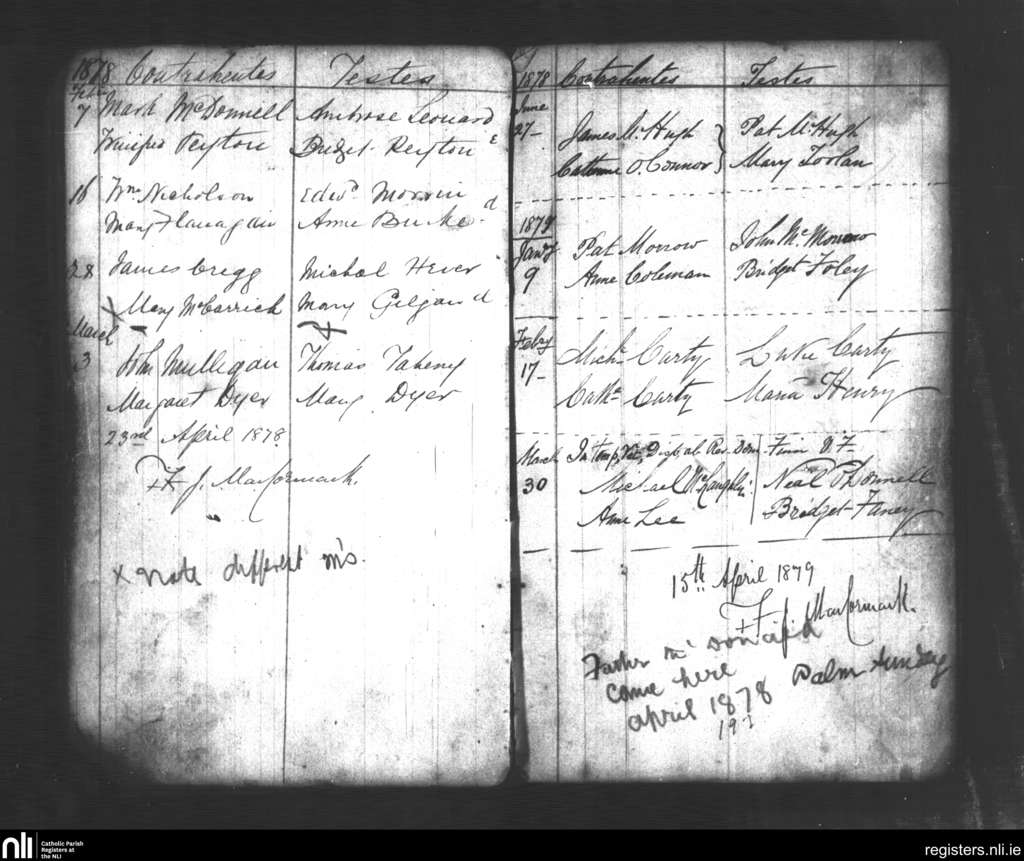 1878 Contrahentes Testes
Feby
7 Mark McDonnell Ambrose Leonard
Winifred Peyton Bridget Peyton
16 Wm Nicholson Edwd Morrin
Mary Flanagan Anne Burke
28 James Gregg Michael Hever
x Mary McCarrick Mary Gilgan
March
3 John Mulligan Thomas Taheny
Margaret Dyer Mary Dyer
23rd April 1878
J. MacCormack.
x note different m's.
1878 Contrahentes Testes
June
27 James McHugh Pat McHugh
Catherine O'Connor Mary Toolan
1879
Jany
9 Pat Morrow John McMorrow
Anne Coleman Bridget Foley
Feby
17 Michl Carty Luke Carty
Cathe Carty Maria Henry
March In temp. Vet. Disp. ab Rev. Dom. Finn V.F.
30 Michael McLaughlin Neal O'Donnell
Ann Lee Bridget
15th April 1879
J. MacCormack.
Father Mc
came here
april 1878 Palm Sunday